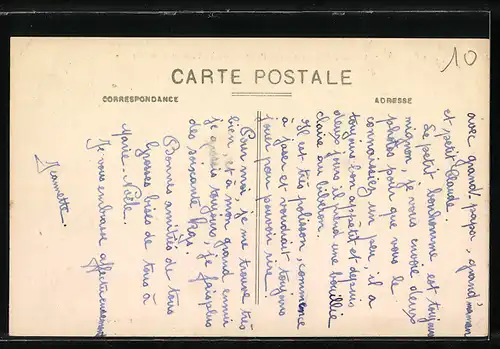 10
CARTE POSTALE
CORRESPONDANCE
ADRESSE
avec grand-papa, grand'maman
et petit Claude
Le petit bonhomme est toujours
mignon, je vous envoie deux
photos pour que vous le
connaissiez un peu, il a
toujours bon appétit et depuis
deux jours il prend une bouillie
claire au biberon.
Il est très polisson, commence
à jaser et voudrait toujours
jouer pour pouvoir rire
Pour moi, je me trouve très
bien et à mon grand ennui
je grossis toujours, je fais plus
des soixante kgs.
Bonnes amitiés de tous
Grosses bises de tous à
Marie-Nële.
Je vous embrasse affectueusement
Jeannette.